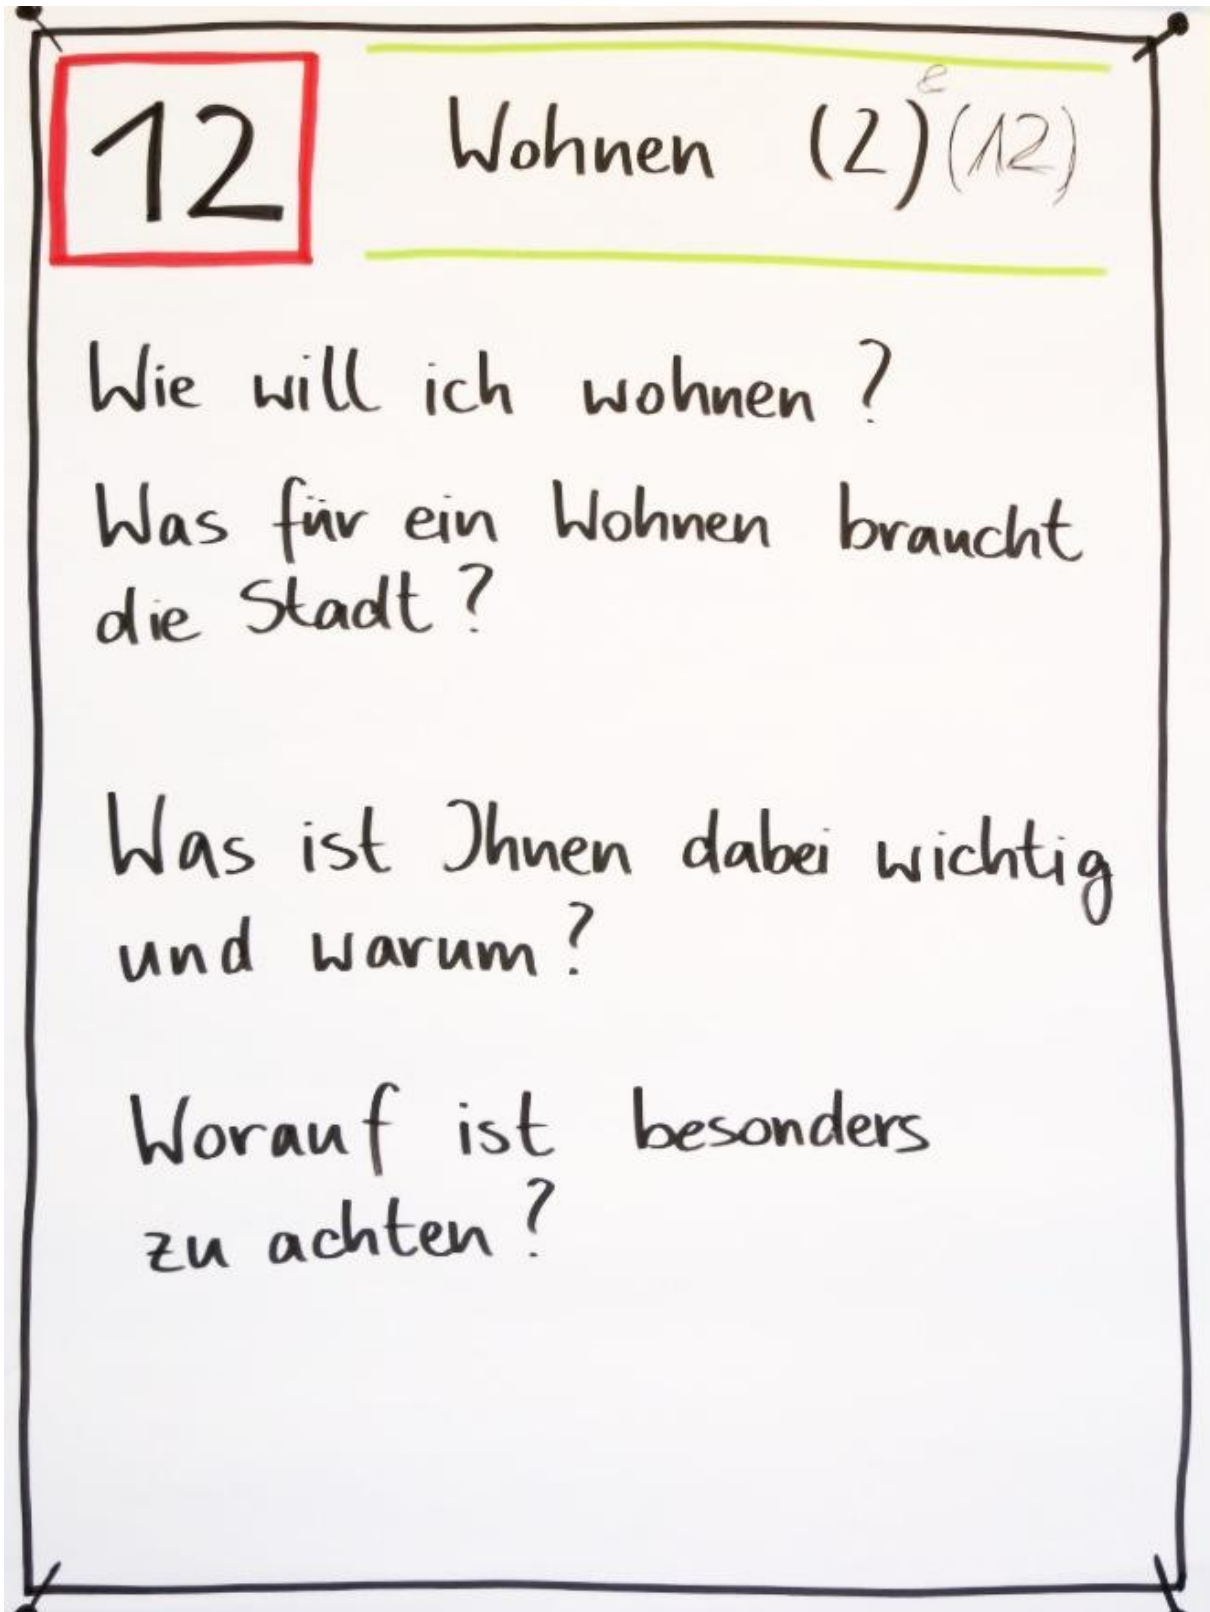 12 Wohnen (2) (12)
Wie will ich wohnen?
Was für ein Wohnen braucht
die Stadt?
Was ist Ihnen dabei wichtig
und warum?
Worauf ist besonders
zu achten?